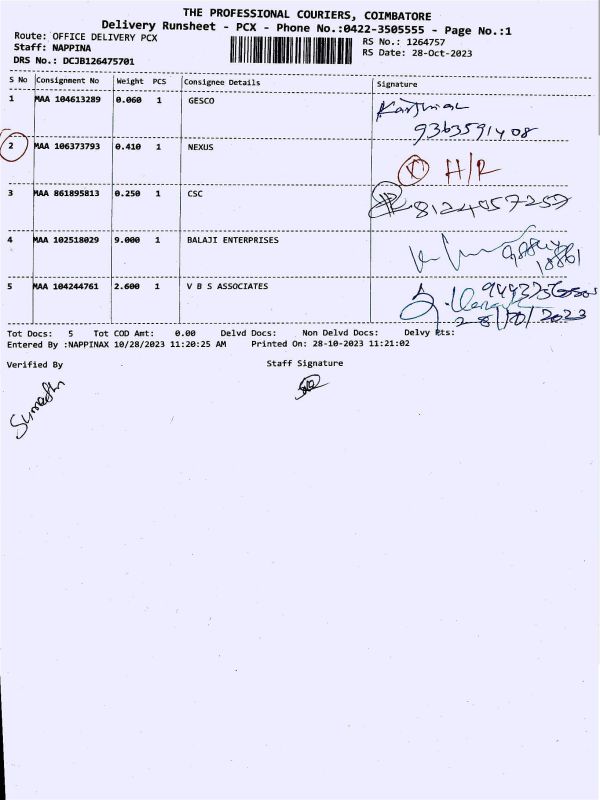 THE PROFESSIONAL COURIERS, COIMBATORE
Delivery Runsheet - PCX - Phone No.:0422-3505555 - Page No.:1
Route: OFFICE DELIVERY PCX
RS No.: 1264757
Staff: NAPPINA
RS Date: 28-Oct-2023
DRS No.: DCJB126475701
S No Consignment No Weight PCS Consignee Details Signature
1 MAA 104613289 0.060 1 GESCO
9363591408
2 MAA 106373793 0.410 1 NEXUS
H/R
3 MAA 861895813 0.250 1 CSC
8124057257
4 MAA 102518029 9.000 1 BALAJI ENTERPRISES
5 MAA 104244761 2.600 1 V B S ASSOCIATES
28/10/2023
Tot Docs: 5 Tot COD Amt: 0.00 Delvd Docs: Non Delvd Docs: Delvy Pts:
Entered By :NAPPINAX 10/28/2023 11:20:25 AM Printed On: 28-10-2023 11:21:02
Verified By Staff Signature